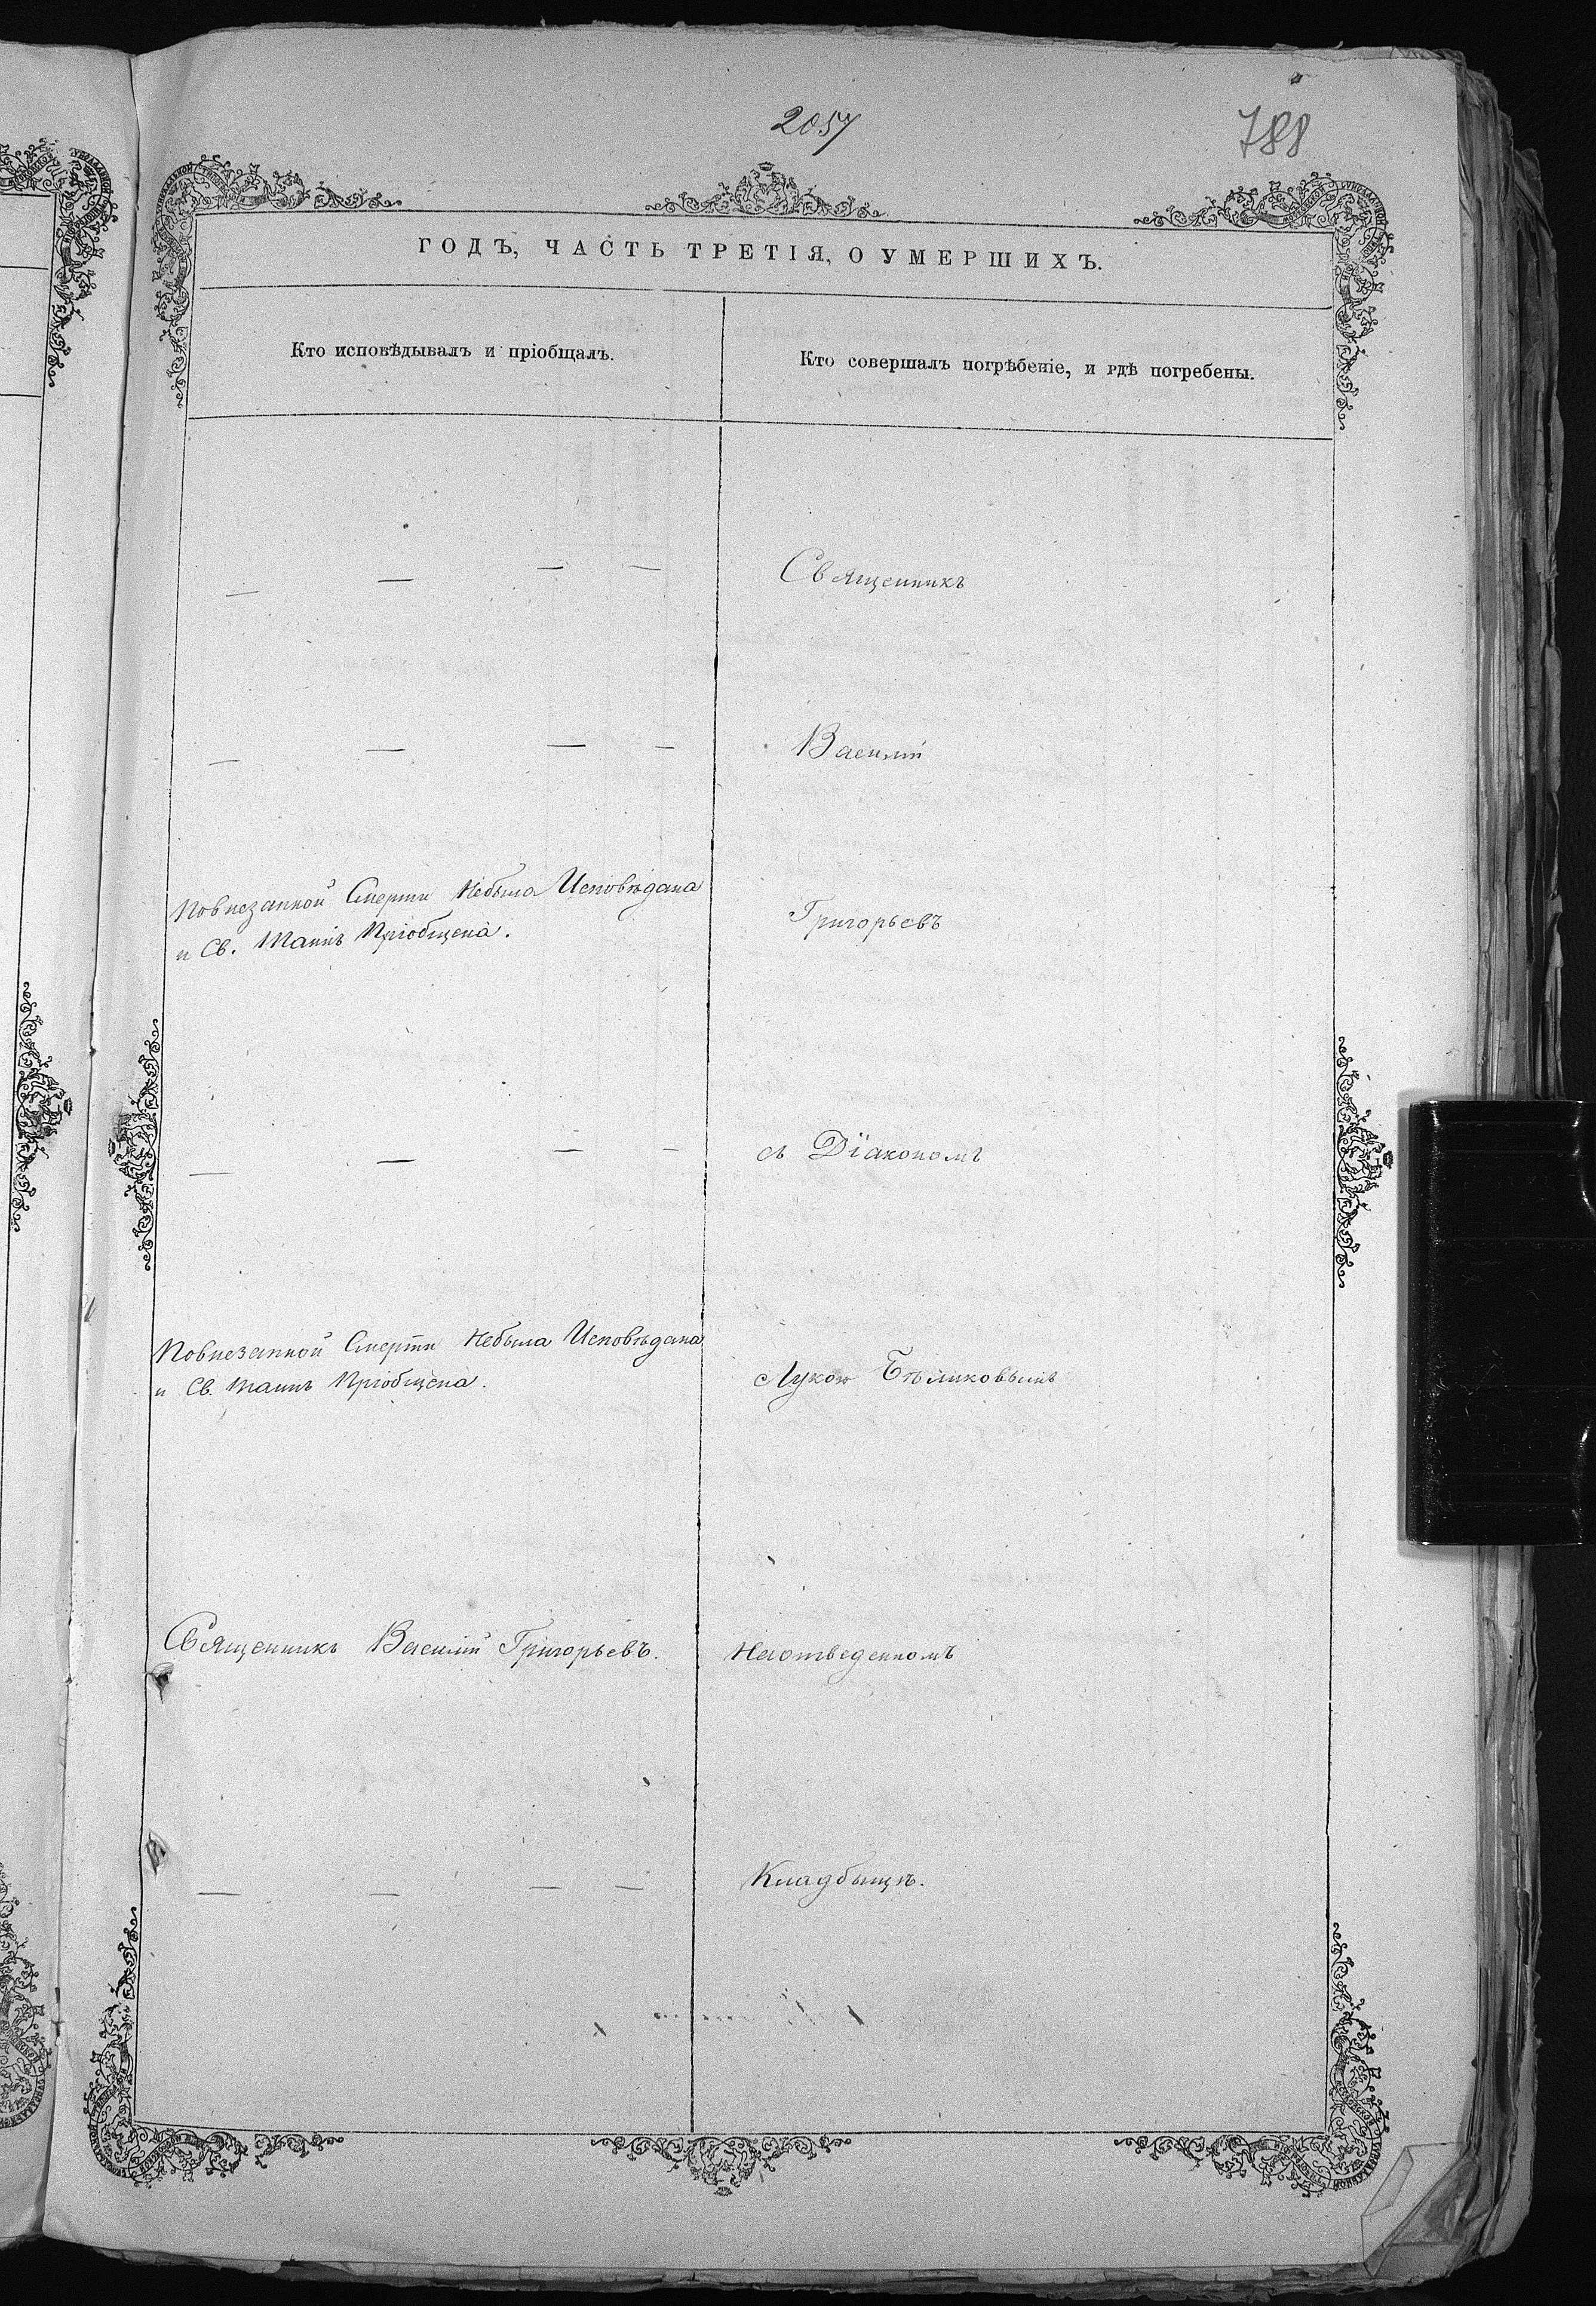 2057
788
ГОДЪ, ЧАСТЬ ТРЕТІЯ, О УМЕРШИХЪ.
Кто исповѣдывалъ и пріобщалъ.
Кто совершалъ погрѣбеніе, и гдѣ погребены.
— — — —
Священникъ
— — — —
Василій
Повнезапной Смерти Небыла Исповѣдана
и Св. Таинъ Пріобщена.
Григорьевъ
— — — —
съ Діакономъ
Повнезапной Смерти Небыла Исповѣдана
и Св. Таинъ Пріобщена.
Лукою Бѣликовымъ
Священникъ Василій Григорьевъ.
Наотведенномъ
— — — —
Кладбищѣ.